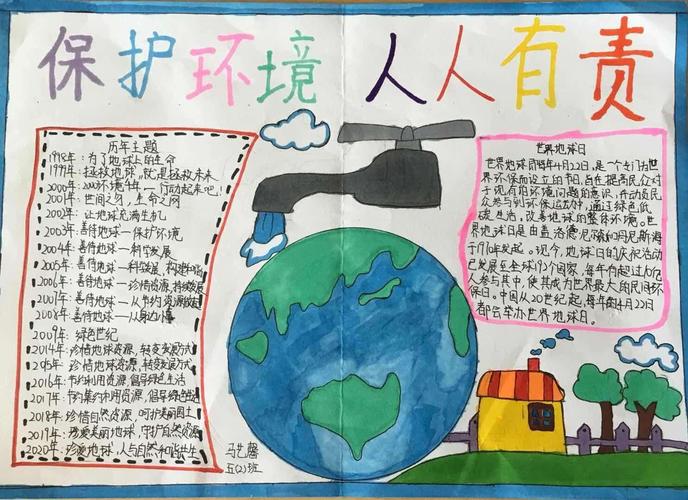 保护环境 人人有责
历年主题
1998年：为了地球上的生命
1999年：拯救地球，就是拯救未来
2000年：2000环境千年—行动起来吧！
2001年：世间万物，生命之网
2002年：让地球充满生机
2003年：善待地球—保护环境
2004年：善待地球—科学发展
2005年：善待地球—科学发展，构建和谐
2006年：善待地球—珍惜资源，持续发展
2007年：善待地球—从节约资源做起
2008年：善待地球—从身边小事
2009年：绿色世纪
2014年：珍惜地球资源，转变发展方式
2015年：珍惜地球资源，转变发展方式
2016年：节约利用资源，倡导绿色生活
2017年：节约集约利用资源，倡导绿色
2018年：珍惜自然资源，呵护美丽国土
2019年：珍爱美丽地球，守护自然资源
2020年：珍爱地球，人与自然和谐共生
世界地球日
世界地球日即每年4月22日，是一个专门为世
界环保而设立的节日，旨在提高民众对
于现有的环境问题的意识，并动员民
众参与到环保运动中，通过绿色低
碳生活，改善地球的整体环境。世
界地球日是由盖洛德·尼尔森和丹尼斯·海
于1970年发起。现今，地球日的庆祝活动
已发展至全球192个国家，每年有超过10亿
人参与其中，使其成为世界最大的民间环
保日。中国从20世纪起，每年4月22日
都会举办世界地球日。
马艺馨
五(2)班